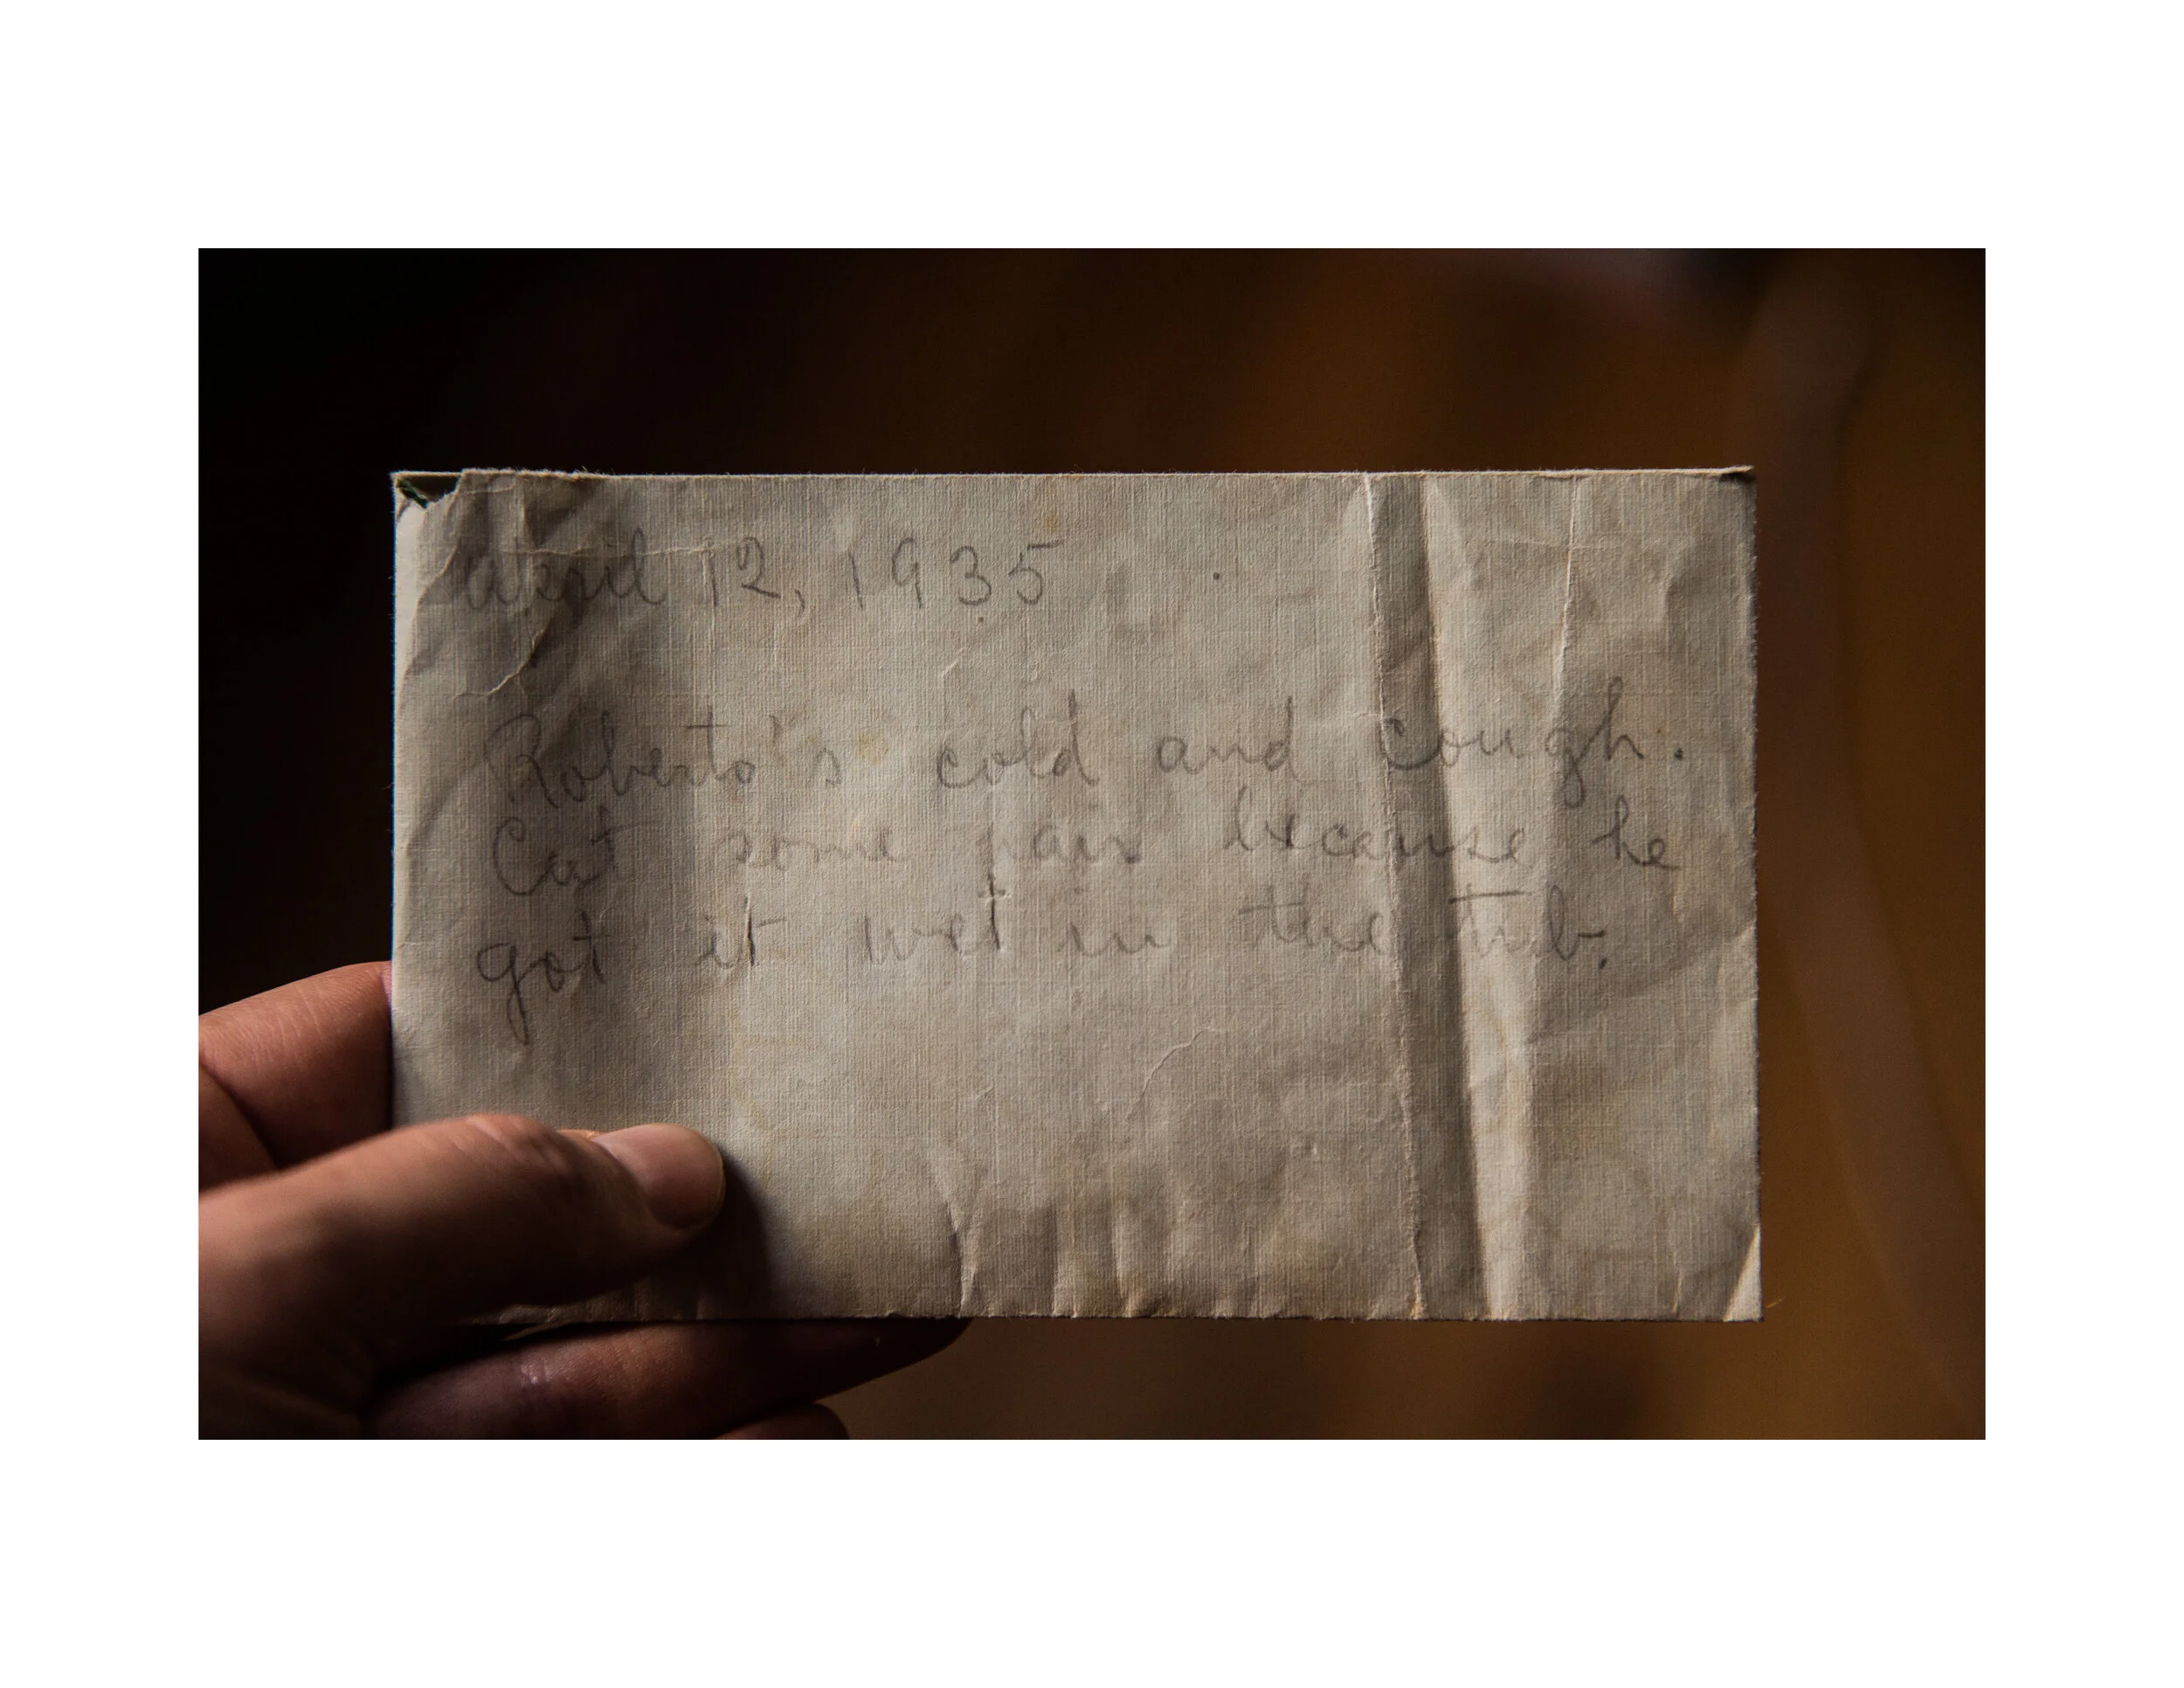 April 12, 1935
Roberto's cold and cough.
Cat some hair because he
got it wet in the tub.